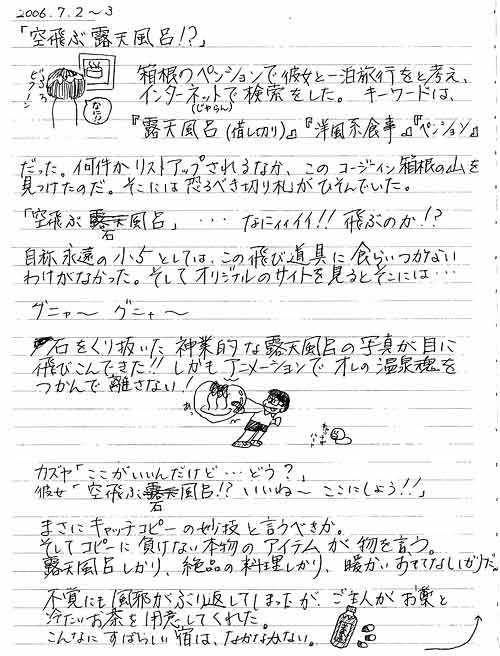 2006.7.2〜3
「空飛ぶ露天風呂!?」
なにっ
箱根のペンションで彼女と一泊旅行をと考え、
インターネットで検索をした。 キーワードは、
(じゃらん)
『露天風呂(借し切り)』『洋風系食事』『ペンション』
だった。何件かリストアップされるなか、このコージーイン箱根の山を
見つけたのだ。そこには恐るべき切り札がひそんでいた。
「空飛ぶ露天風呂」… なにィィイイ!! 飛ぶのか!?
石
自称永遠の小5としては、この飛び道具に食らいつかない
わけがなかった。そしてオリジナルのサイトを見るとそこには…
グニャ〜 グニャ〜
石をくり抜いた神業的な露天風呂の写真が目に
飛びこんできた!! しかもアニメーションでオレの温泉魂を
つかんで離さない!
あっ
カズヤ「ここがいいんだけど…どう?」
彼女「空飛ぶ露天風呂!? いいね〜 ここにしよう!!」
石
まさにキャッチコピーの妙技と言うべきか。
そしてコピーに負けない本物のアイテムが物を言う。
露天風呂しかり、絶品の料理しかり、暖かいおもてなししかりだ。
不覚にも風邪がぶり返してしまったが、ご主人がお薬と
冷たいお茶を用意してくれた。
こんなにすばらしい宿は、なかなかない。